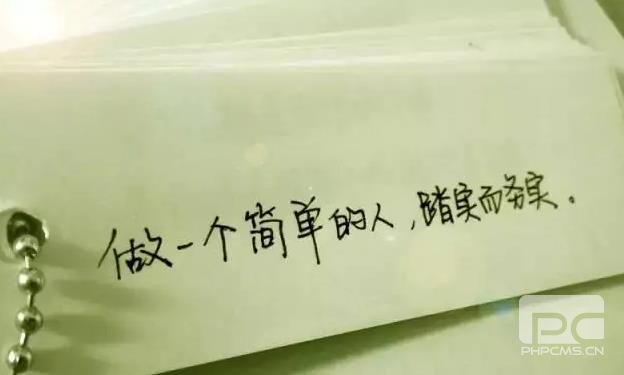 做一个简单的人，踏实而务实。
PC
PHPCMS.CN